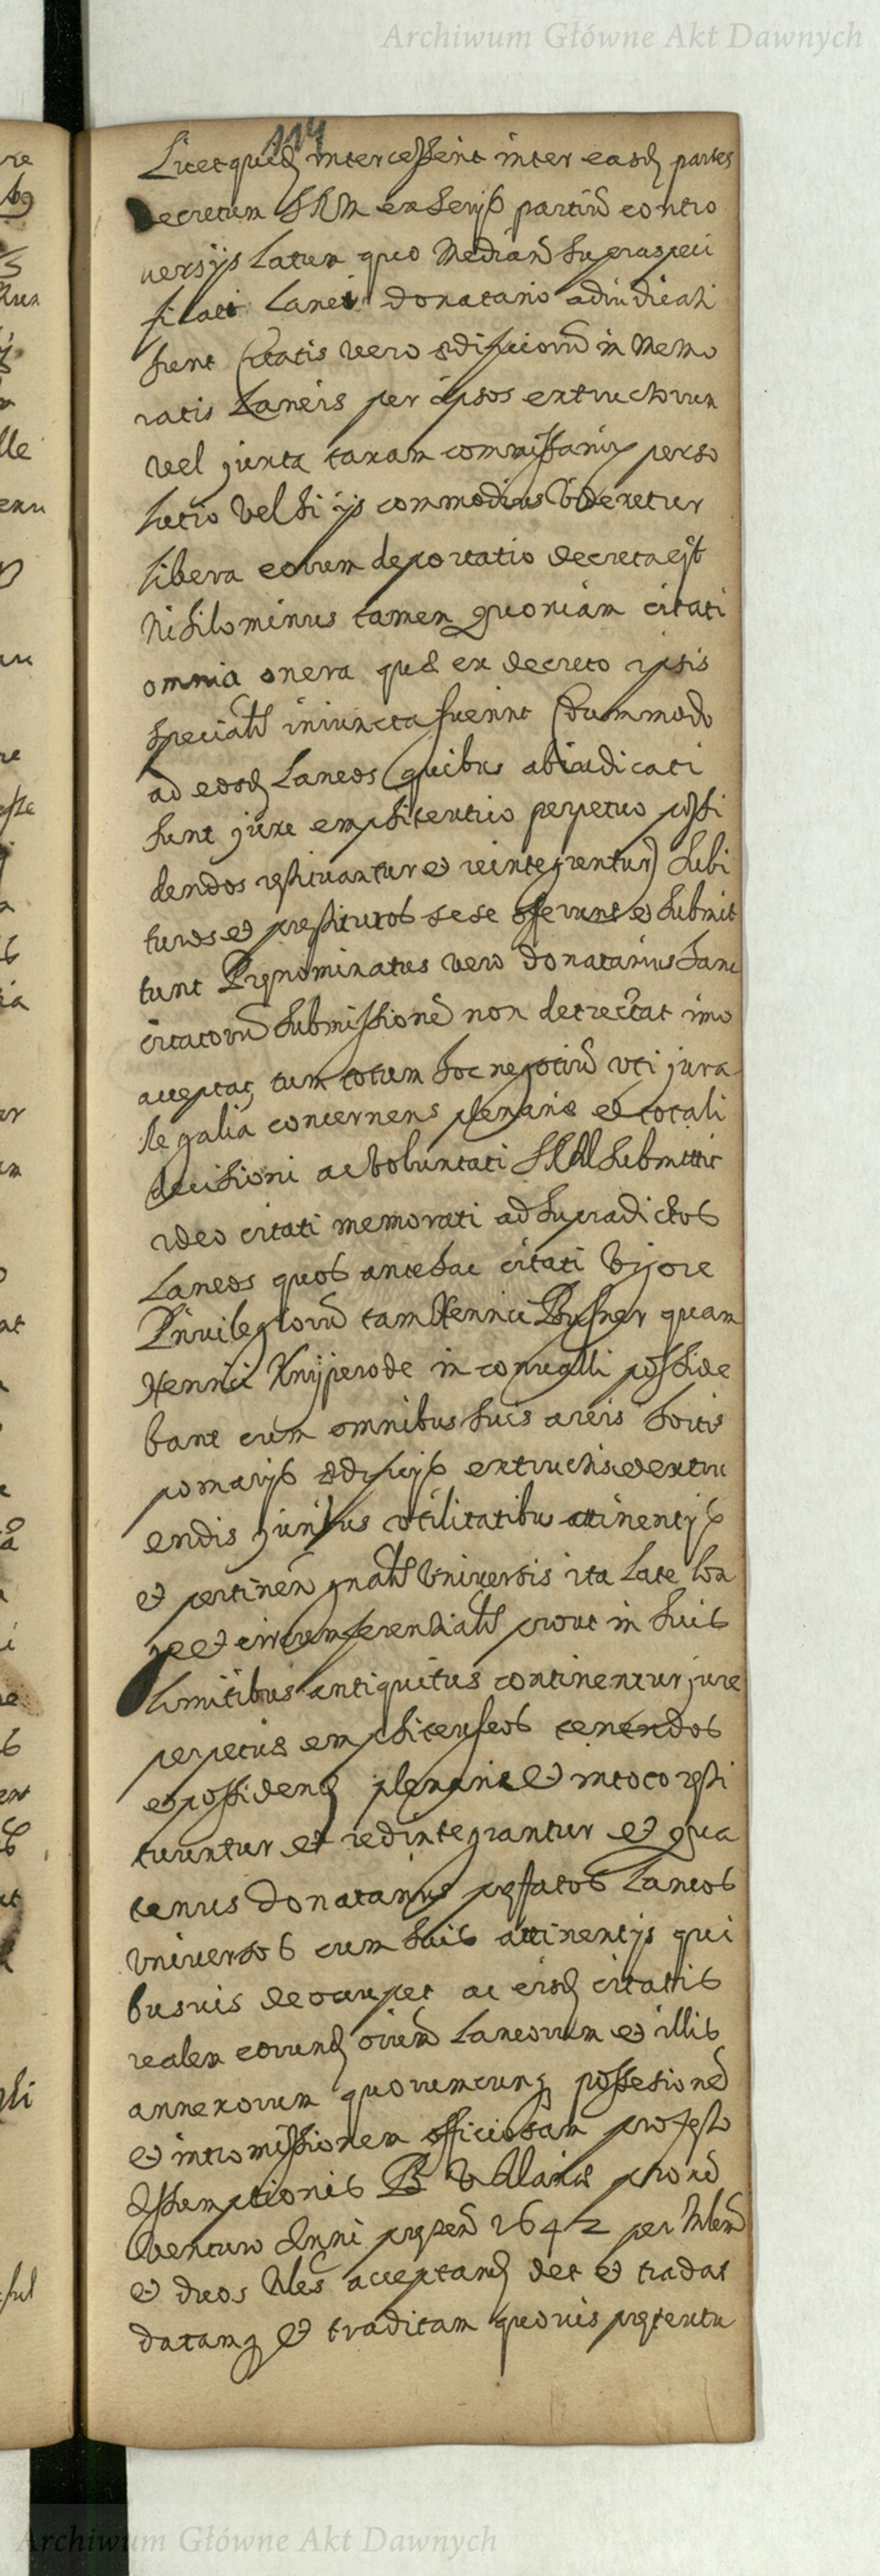 Archiwum Główne Akt Dawnych
114
Licet quidē intercesserit inter easdē partes
Decretum SRM ex serijs partiū contro
versijs Latum quo Medianū supraspeci
ficati Lanei donatario adiudicati
sunt Citatis vero ædificiorū in Memo
ratis Laneis per ipsos extructorum
vel juxta taxam commissariū perso
lutio vel si ijs commodius videretur
libera eorum deportatio decreta est
Nihilominus tamen quoniam citati
omnia onera quæ ex decreto ipsis
specialit iniuncta fuerint (dummodo
ad eosdē Laneos quibus abiudicati
sunt jure emphiteutico perpetuo possi
dendos restituantur et reintegrentur) subi
turos et præstituros sese offerunt et submit
tunt Prænominatus vero donatarius hanc
citatorū submissionē non detrectat imo
acceptat, tum totum hoc negotiū uti jura
Regalia concernens plenarie et totali
decisioni ac voluntati SRM submittit
Ideo citati memorati ad supradictos
Laneos quos antehac citati vigore
Privilegiorū tam Henrici quam
Henrici Knijperode in convalli posside
bant cum omnibus suis areis hortis
pomarijs ædificijs extructis et extru
endis juribus utilitatibus attinentijs
et pertinen gnalit universis ita Late Lon
ge et circumferentialit prout in suis
limitibus antiquitus continentur jure
perpetuæ emphiteuseos tenendos
et possidendē plenarie et in toto resti
tuuntur et redintegrantur et qua
tenus Donatarius præfatos Laneos
universos cum suis attinentijs qui
busvis deoccupet ac eisdē citatis
realem eorundē oīum Laneorum et illis
annexorum quorumcunq possesionē
et intromissionem officiosam pro festo
Assumptionis B V Mariæ proxē
venturo Anni præsen 1642 per Mlem
et duos Nles acceptandē det et tradat
datamq et traditam quovis prætextu
Archiwum Główne Akt Dawnych